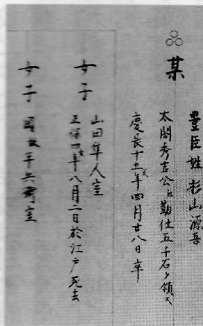 豊臣姓 杉山源吾
某
太閤秀吉公ニ勤仕五千石ヲ領ス
慶長十五年四月廿八日卒
女子
山田隼人室
正保四年八月二日於江戸死去
女子
平兵衛室